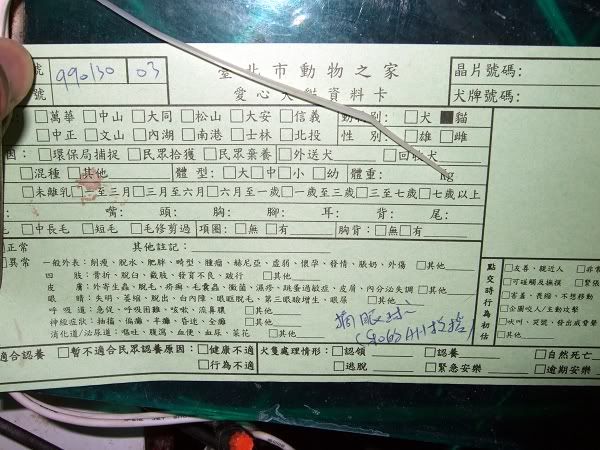 號 990130 03 臺北市動物之家 晶片號碼:
號 愛心犬貓資料卡 犬牌號碼:
□萬華 □中山 □大同 □松山 □大安 □信義 別:□犬 ■貓
□中正 □文山 □內湖 □南港 □士林 □北投 性 別:□雄 □雌
因:□環保局捕捉 □民眾拾獲 □民眾棄養 □外送犬 □回收犬
□混種 □其他 體 型:□大□中□小 □幼 體重: kg
□未離乳 至三月 □三月至六月 □六月至一歲 □一歲至三歲 □三至七歲 □七歲以上
嘴: 頭: 胸: 腳: 耳: 背: 尾:
毛 □中長毛 □短毛 □毛修剪過 項圈:□無 □有 胸背:□無□有
正常 其他註記:
異常 一般外表:削瘦、脫水、肥胖、畸型、腫瘤、赫尼亞、虛弱、懷孕、發情、脹奶、外傷 □其他
四 肢:骨折、脫臼、截肢、發育不良、跛行 □其他
皮 膚:外寄生蟲、脫毛、疥癬、毛囊蟲、黴菌、濕疹、跳蚤過敏症、皮屑、內分泌失調 □其他
眼 睛:失明、萎縮、脫出、白內障、眼眶脫毛、第三眼瞼增生、眼屎 □其他
呼 吸 道:急促、呼吸困難、咳嗽、流鼻膿 □其他
神經症狀:抽搐、偏癱、半癱、昏迷、全癱 □其他
消化道/泌尿道:嘔吐、腹瀉、血便、血尿、菜花 □其他
摘眼球
點交時行為初估
□友善、親近人 □非常
□可碰觸及撫摸 □緊張
□害羞、畏縮、不想移動
□企圖咬人/主動攻擊
□吠叫、哭號、發出威脅聲
□其他
適合認養 □暫不適合民眾認養原因:□健康不適 犬隻處理情形:□認領 □認養 □自然死亡
□行為不適 □逃脫 □緊急安樂 □逾期安樂